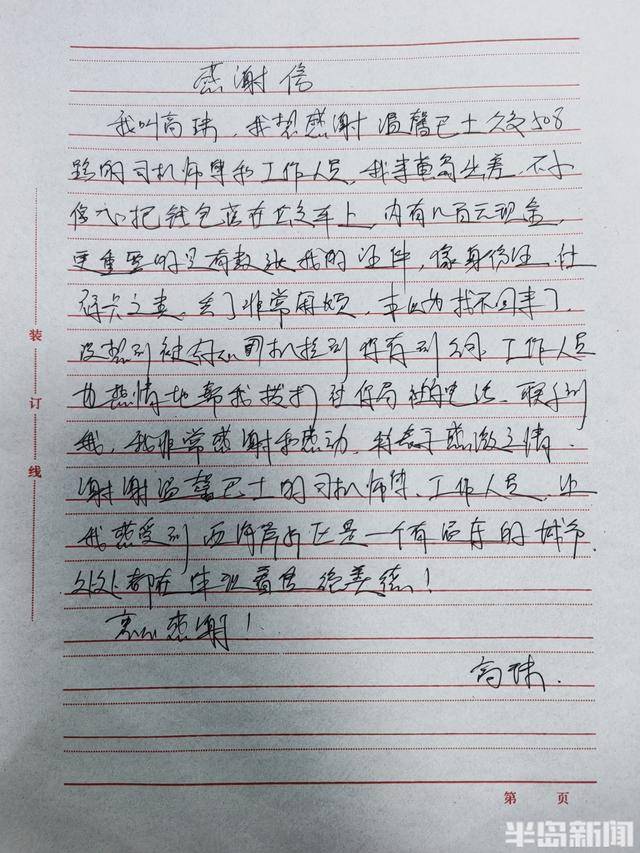 感谢信
我叫高珠，我想感谢温馨巴士公交508
路的司机师傅和工作人员，我来黄岛出差，不小
心把钱包落在公交车上，内有几百元现金，
更重要的是有数张我的证件，像身份证、社
保卡之类，丢了非常麻烦，本以为找不回来了，
没想到被好心司机捡到
工作人员
热情地帮我拨打社保局的电话，联系到
我，我非常感谢和感动，特表示感激之情。
谢谢温馨巴士的司机师傅、工作人员，让
我感受到西海岸新区是一个有温度的城市，
处处都在体现着真善美！
衷心感谢！
高珠.
装
订
线
第 页
半岛新闻